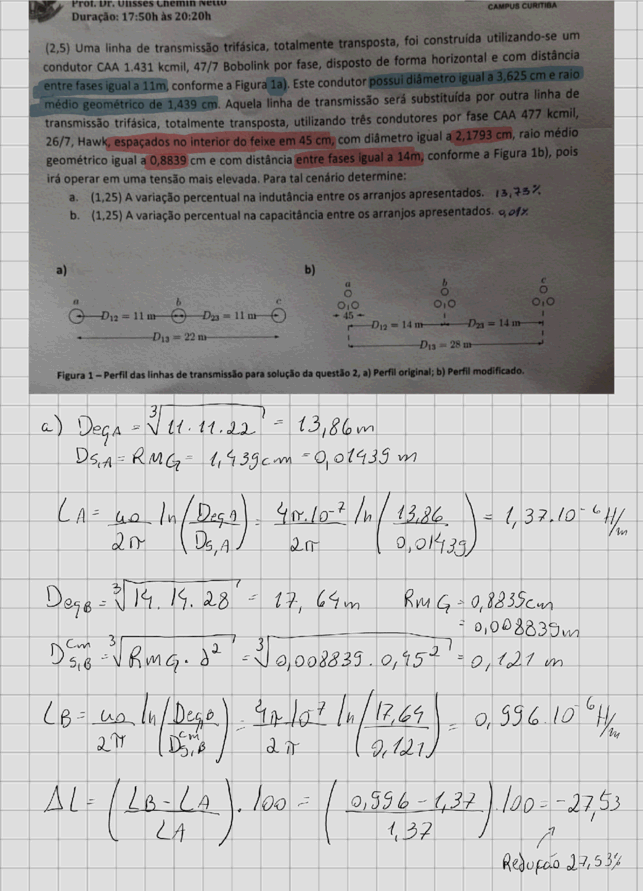 Prof. Dr. Ulisses Chemin Netto
CAMPUS CURITIBA
Duração: 17:50h às 20:20h
(2,5) Uma linha de transmissão trifásica, totalmente transposta, foi construída utilizando-se um
condutor CAA 1.431 kcmil, 47/7 Bobolink por fase, disposto de forma horizontal e com distância
entre fases igual a 11m, conforme a Figura 1a). Este condutor possui diâmetro igual a 3,625 cm e raio
médio geométrico de 1,439 cm. Aquela linha de transmissão será substituída por outra linha de
transmissão trifásica, totalmente transposta, utilizando três condutores por fase CAA 477 kcmil,
26/7, Hawk, espaçados no interior do feixe em 45 cm, com diâmetro igual a 2,1793 cm, raio médio
geométrico igual a 0,8839 cm e com distância entre fases igual a 14m, conforme a Figura 1b), pois
irá operar em uma tensão mais elevada. Para tal cenário determine:
a. (1,25) A variação percentual na indutância entre os arranjos apresentados. 13,73%
b. (1,25) A variação percentual na capacitância entre os arranjos apresentados. 0,01%
a)
b)
a b c
D12 = 11 m D23 = 11 m
D13 = 22 m
a b c
45
D12 = 14 m D23 = 14 m
D13 = 28 m
Figura 1 – Perfil das linhas de transmissão para solução da questão 2, a) Perfil original; b) Perfil modificado.
a) DeqA = ∛(11.11.22) = 13,86m
Ds,A = RMG = 1,439cm = 0,01439 m
LA = μo/2π ln(DeqA/Ds,A) = 4π.10^-7/2π ln(13,86/0,01439) = 1,37.10^-6 H/m
DeqB = ∛(14.14.28) = 17,64m RMG = 0,8839cm
= 0,008839m
Ds,B^cm = ∛(RMG.d²) = ∛(0,008839.0,45²) = 0,121 m
LB = μo/2π ln(DeqB/Ds,B^cm) = 4π.10^7/2π ln(17,64/0,121) = 0,996.10^-6 H/m
ΔL = (LB-LA/LA).100 = (0,996-1,37/1,37).100 = -27,53
Redução 27,53%